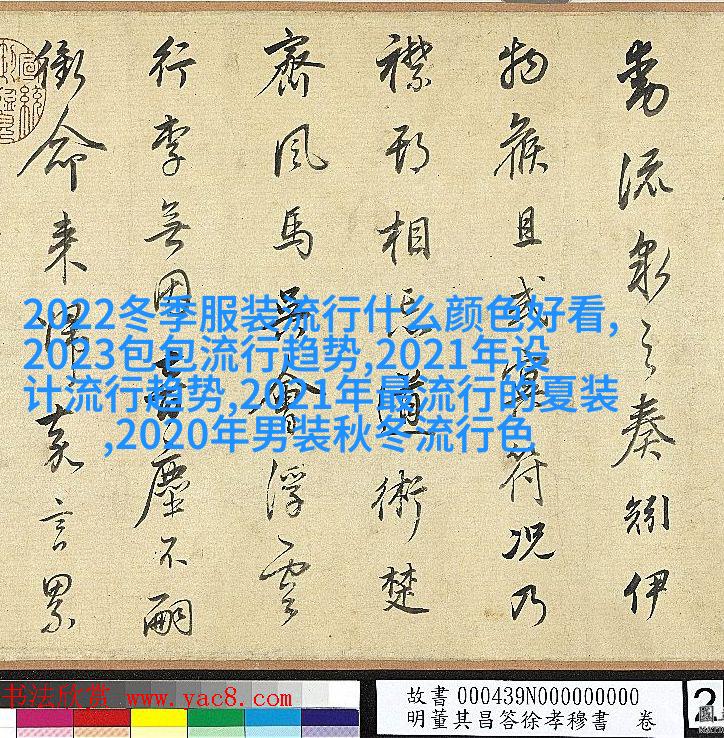 動流泉之奏矧伊
物候且或冥符況乃
襟期相忘道術楚
齊風馬吳會浮雲
行李無因音塵不嗣
銜命來歸嘉言累
2022冬季服装流行什么颜色好看,
2023包包流行趋势,2021年设
计流行趋势,2021年最流行的夏装
,2020年男装秋冬流行色
书法欣赏 www.yac8.com
故書 000439N000000000
明董其昌答徐孝穆書 卷
2